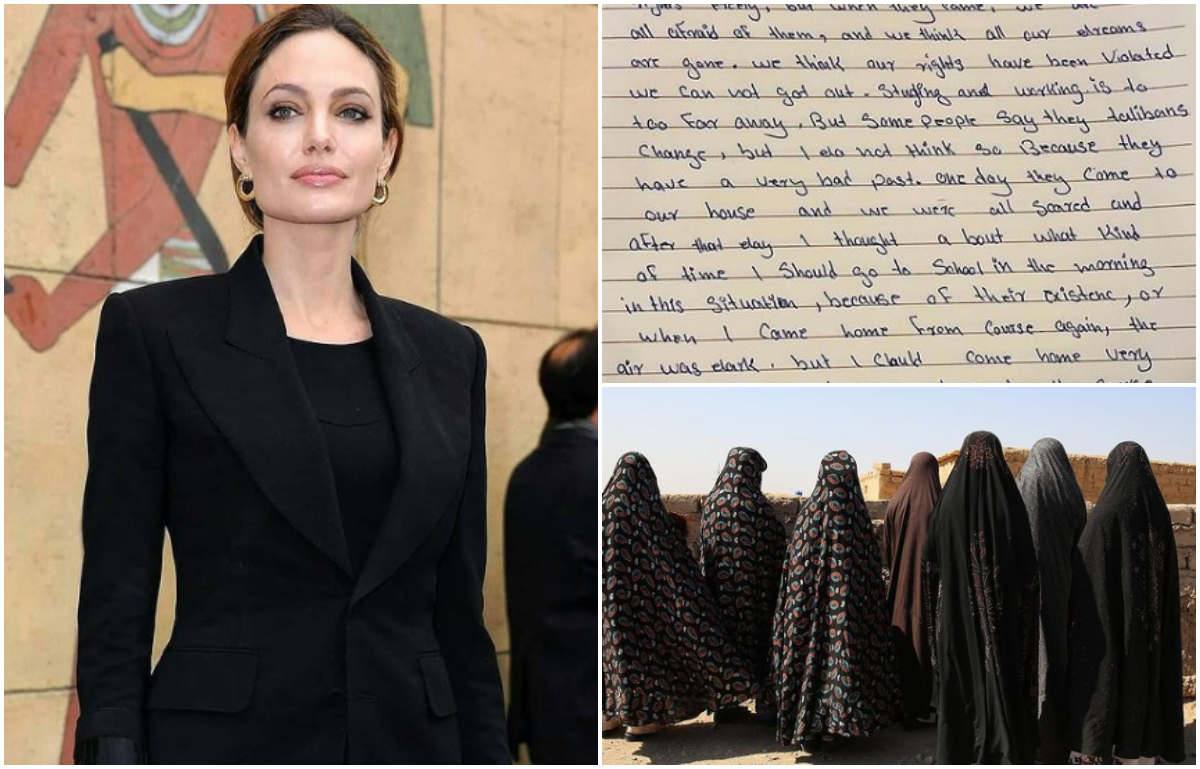 rights freely, but when they came, we are
all afraid of them, and we think all our dreams
are gone. we think our rights have been Violated
we can not got out. Studing and working is to
too far away, But Some People Say they talibans
Change, but I do not think so Because they
have a very bad past. one day they Come to
our house and we were all Scared and
after that day I thought a bout what Kind
of time I Should go to School in the morning
in this situation, because of their existenc, or
when I Came home from Course again, the
air was dark. but I Clould Come home very